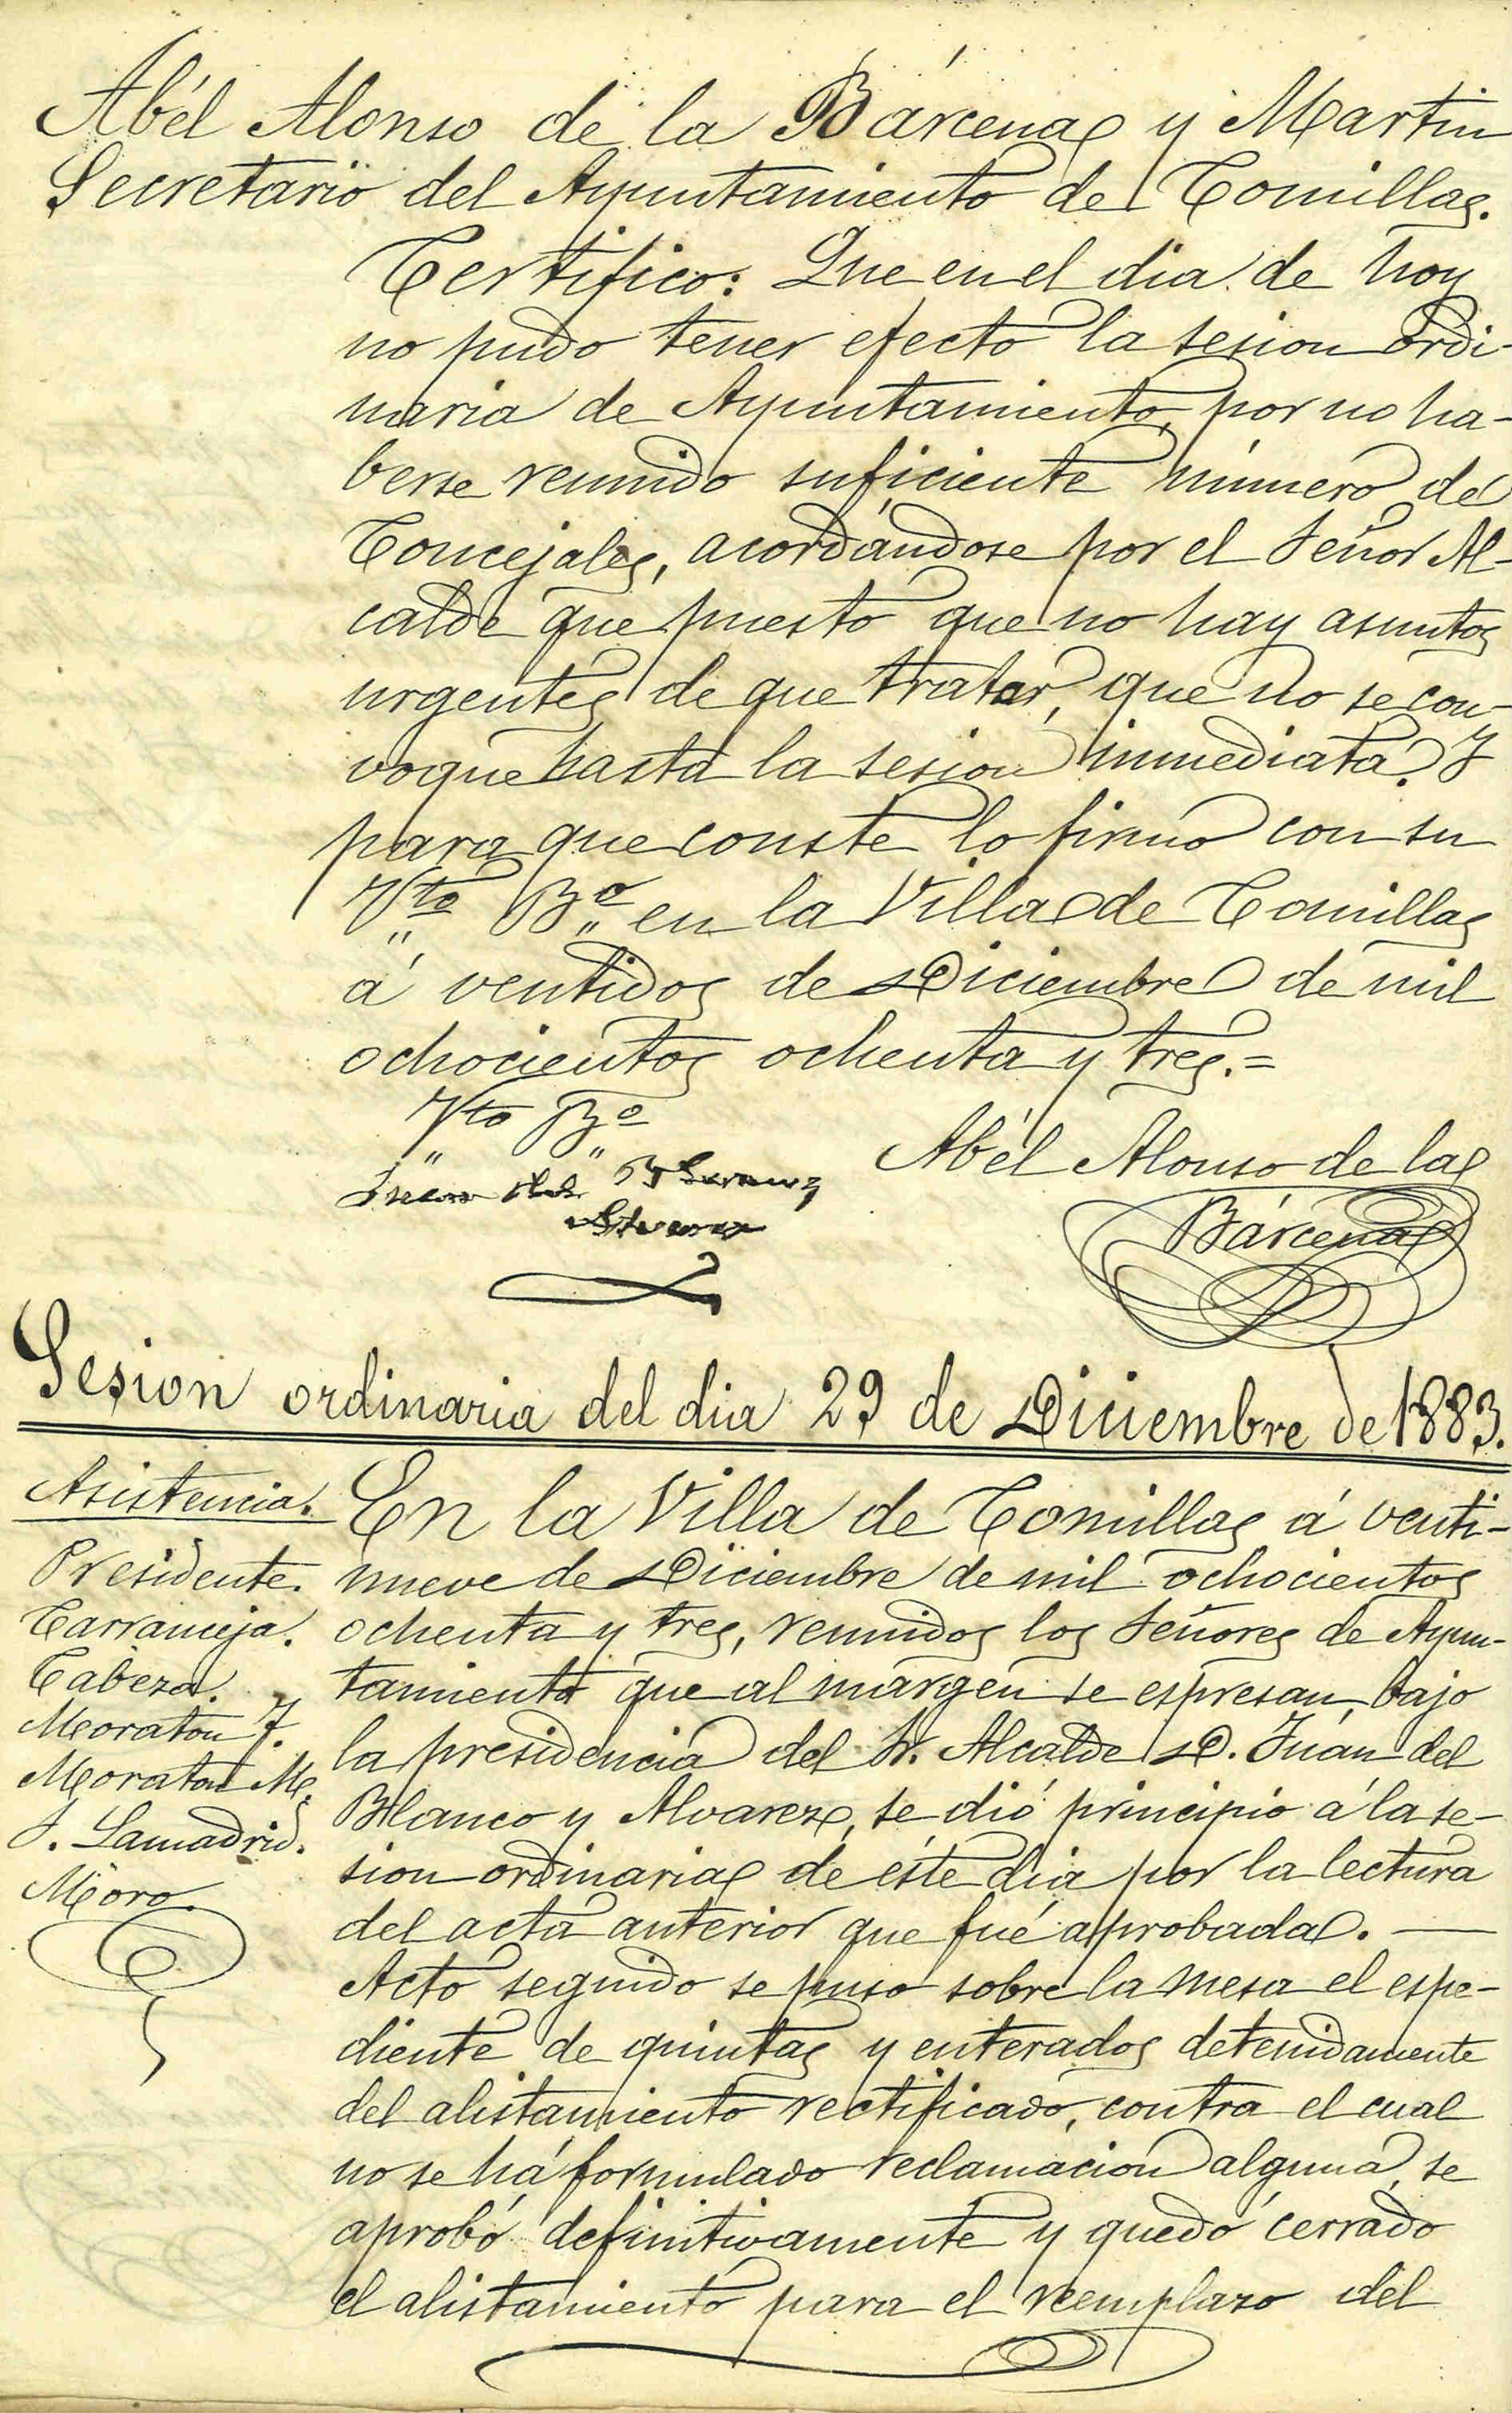 Abél Alonso de la Bárcena y Martin
Secretario del Ayuntamiento de Comillas.
Certifico: Que en el dia de hoy
no pudo tener efecto la sesion ordi-
naria de Ayuntamiento, por no ha-
berse reunido suficiente número de
Concejales, acordándose por el Señor Al-
calde que puesto que no hay asuntos
urgentes de que tratar, que no se con-
voque hasta la sesion inmediata. Y
para que conste lo firmo con su
Vto Bo en la Villa de Comillas
á ventidos de Diciembre de mil
ochocientos ochenta y tres.=
Vto Bo
Abél Alonso de la
Bárcena
Sesion ordinaria del dia 29 de Diciembre de 1883.
Asistencia.
Presidente.
Carranceja.
Cabeza.
Moraton J.
Moraton M.
S. Lamadrid.
Moro.
En la Villa de Comillas á venti-
nueve de Diciembre de mil ochocientos
ochenta y tres, reunidos los Señores de Ayun-
tamiento que al margen se espresan, bajo
la presidencia del Sr. Alcalde D. Juan del
Blanco y Alvarez, se dió principio á la se-
sion ordinaria de este dia por la lectura
del acta anterior que fué aprobada.
Acto seguido se puso sobre la mesa el espe-
diente de quintas y enterados detenidamente
del alistamiento rectificado, contra el cual
no se há formulado reclamacion alguna, se
aprobó definitivamente y quedó cerrado
el alistamiento para el reemplazo del